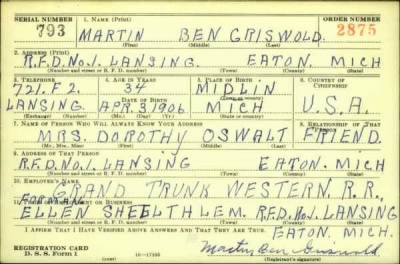 SERIAL NUMBER 1. NAME (Print) ORDER NUMBER
793 MARTIN BEN GRISWOLD. 2875
(First) (Middle) (Last)
2. ADDRESS (Print)
R.F.D. No.1. LANSING. EATON. MICH
(Number and street or R. F. D. number) (Town) (County) (State)
3. TELEPHONE 4. AGE IN YEARS 5. PLACE OF BIRTH 6. COUNTRY OF CITIZENSHIP
721.F2. 34 MIDLIN
(Town or county)
DATE OF BIRTH U.S.A.
LANSING APR.3 1906 MICH
(Exchange) (Number) (Mo.) (Day) (Yr.) (State or country)
7. NAME OF PERSON WHO WILL ALWAYS KNOW YOUR ADDRESS 8. RELATIONSHIP OF THAT PERSON
MRS. DOROTHY OSWALT FRIEND.
(Mr., Mrs., Miss) (First) (Middle) (Last)
9. ADDRESS OF THAT PERSON
R.F.D. No.1 LANSING EATON. MICH
(Number and street or R. F. D. number) (Town) (County) (State)
10. EMPLOYER'S NAME
GRAND TRUNK WESTERN. R.R.
11. PLACE OF EMPLOYMENT OR BUSINESS
ELLEN R.F.D. No.1 LANSING
(Number and street or R. F. D. number) (Town) (County) (State)
I AFFIRM THAT I HAVE VERIFIED ABOVE ANSWERS AND THAT THEY ARE TRUE.
EATON. MICH.
REGISTRATION CARD
D. S. S. Form 1 16—17105 Martin Ben Griswold